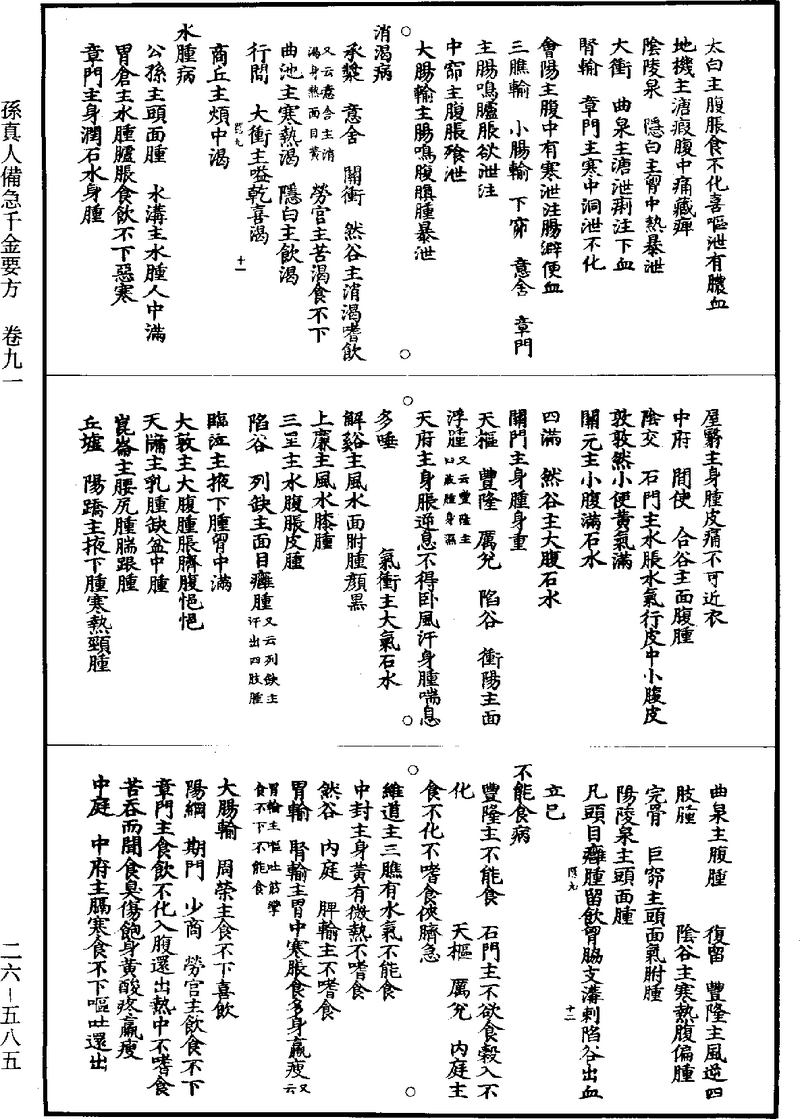 太白主腹脹食不化喜嘔泄有膿血
地機主溏瘕腹中痛藏痺
陰陵泉　隱白主胷中熱暴泄
大衝　曲泉主溏泄痢注下血
腎輸　章門主寒中洞泄不化
會陽主腹中有寒泄注腸澼便血
三膲輸　小腸輸　下窌　意舍　章門
主腸鳴臚脹欲泄注
中窌主腹脹飱泄
大腸輸主腸鳴腹䐜腫暴泄
消渴病
承漿　意舍　關衝　然谷主消渴嗜飲
又云意舍主消
渴身熱面目黃
勞宮主苦渴食不下
曲池主寒熱渴　隱白主飲渴
行間　大衝主嗌乾喜渴
商丘主煩中渴
水腫病
公孫主頭面腫　水溝主水腫人中滿
胃倉主水腫臚脹食飲不下惡寒
章門主身潤石水身腫
屋翳主身腫皮痛不可近衣
中府　間使　合谷主面腹腫
陰交　石門主水脹水氣行皮中小腹皮
敦敦然小便黃氣滿
關元主小腹滿石水
四滿　然谷主大腹石水
關門主身腫身重
天樞　豐隆　厲兌　陷谷　衝陽主面
浮腫
又云豐隆主
四肢腫身濕
天府主身脹逆息不得卧風汗身腫喘息
多唾　氣衝主大氣石水
解谿主風水面胕腫顏黑
上廉主風水膝腫
三里主水腹脹皮腫
陷谷　列缺主面目癰腫
又云列缺主
汗出四肢腫
臨泣主掖下腫胷中滿
大敦主大腹腫脹臍腹悒悒
天牖主乳腫缺盆中腫
崑崙主腰尻腫腨跟腫
丘墟　陽蹻主掖下腫寒熱頸腫
曲泉主腹腫　復留　豐隆主風逆四
肢腫　陰谷主寒熱腹偏腫
完骨　巨窌主頭面氣胕腫
陽陵泉主頭面腫
凡頭目癰腫留飲胷脇支滿刺陷谷出血
立已
不能食病
豐隆主不能食　石門主不欲食穀入不
化　天樞　厲兌　內庭主
食不化不嗜食俠臍急
維道主三膲有水氣不能食
中封主身黃有微熱不嗜食
然谷　內庭　脾輸主不嗜食
胃輸　腎輸主胃中寒脹食多身羸瘦
又云
胃輸主嘔吐筋攣
食不下不能食
大腸輸　周榮主食不下喜飲
陽綱　期門　少商　勞宮主飲食不下
章門主食飲不化入腹還出熱中不嗜食
苦吞而聞食臭傷飽身黃酸疼羸瘦
中庭　中府主膈寒食不下嘔吐還出
孫真人備急千金要方　卷九一
二六－五八五